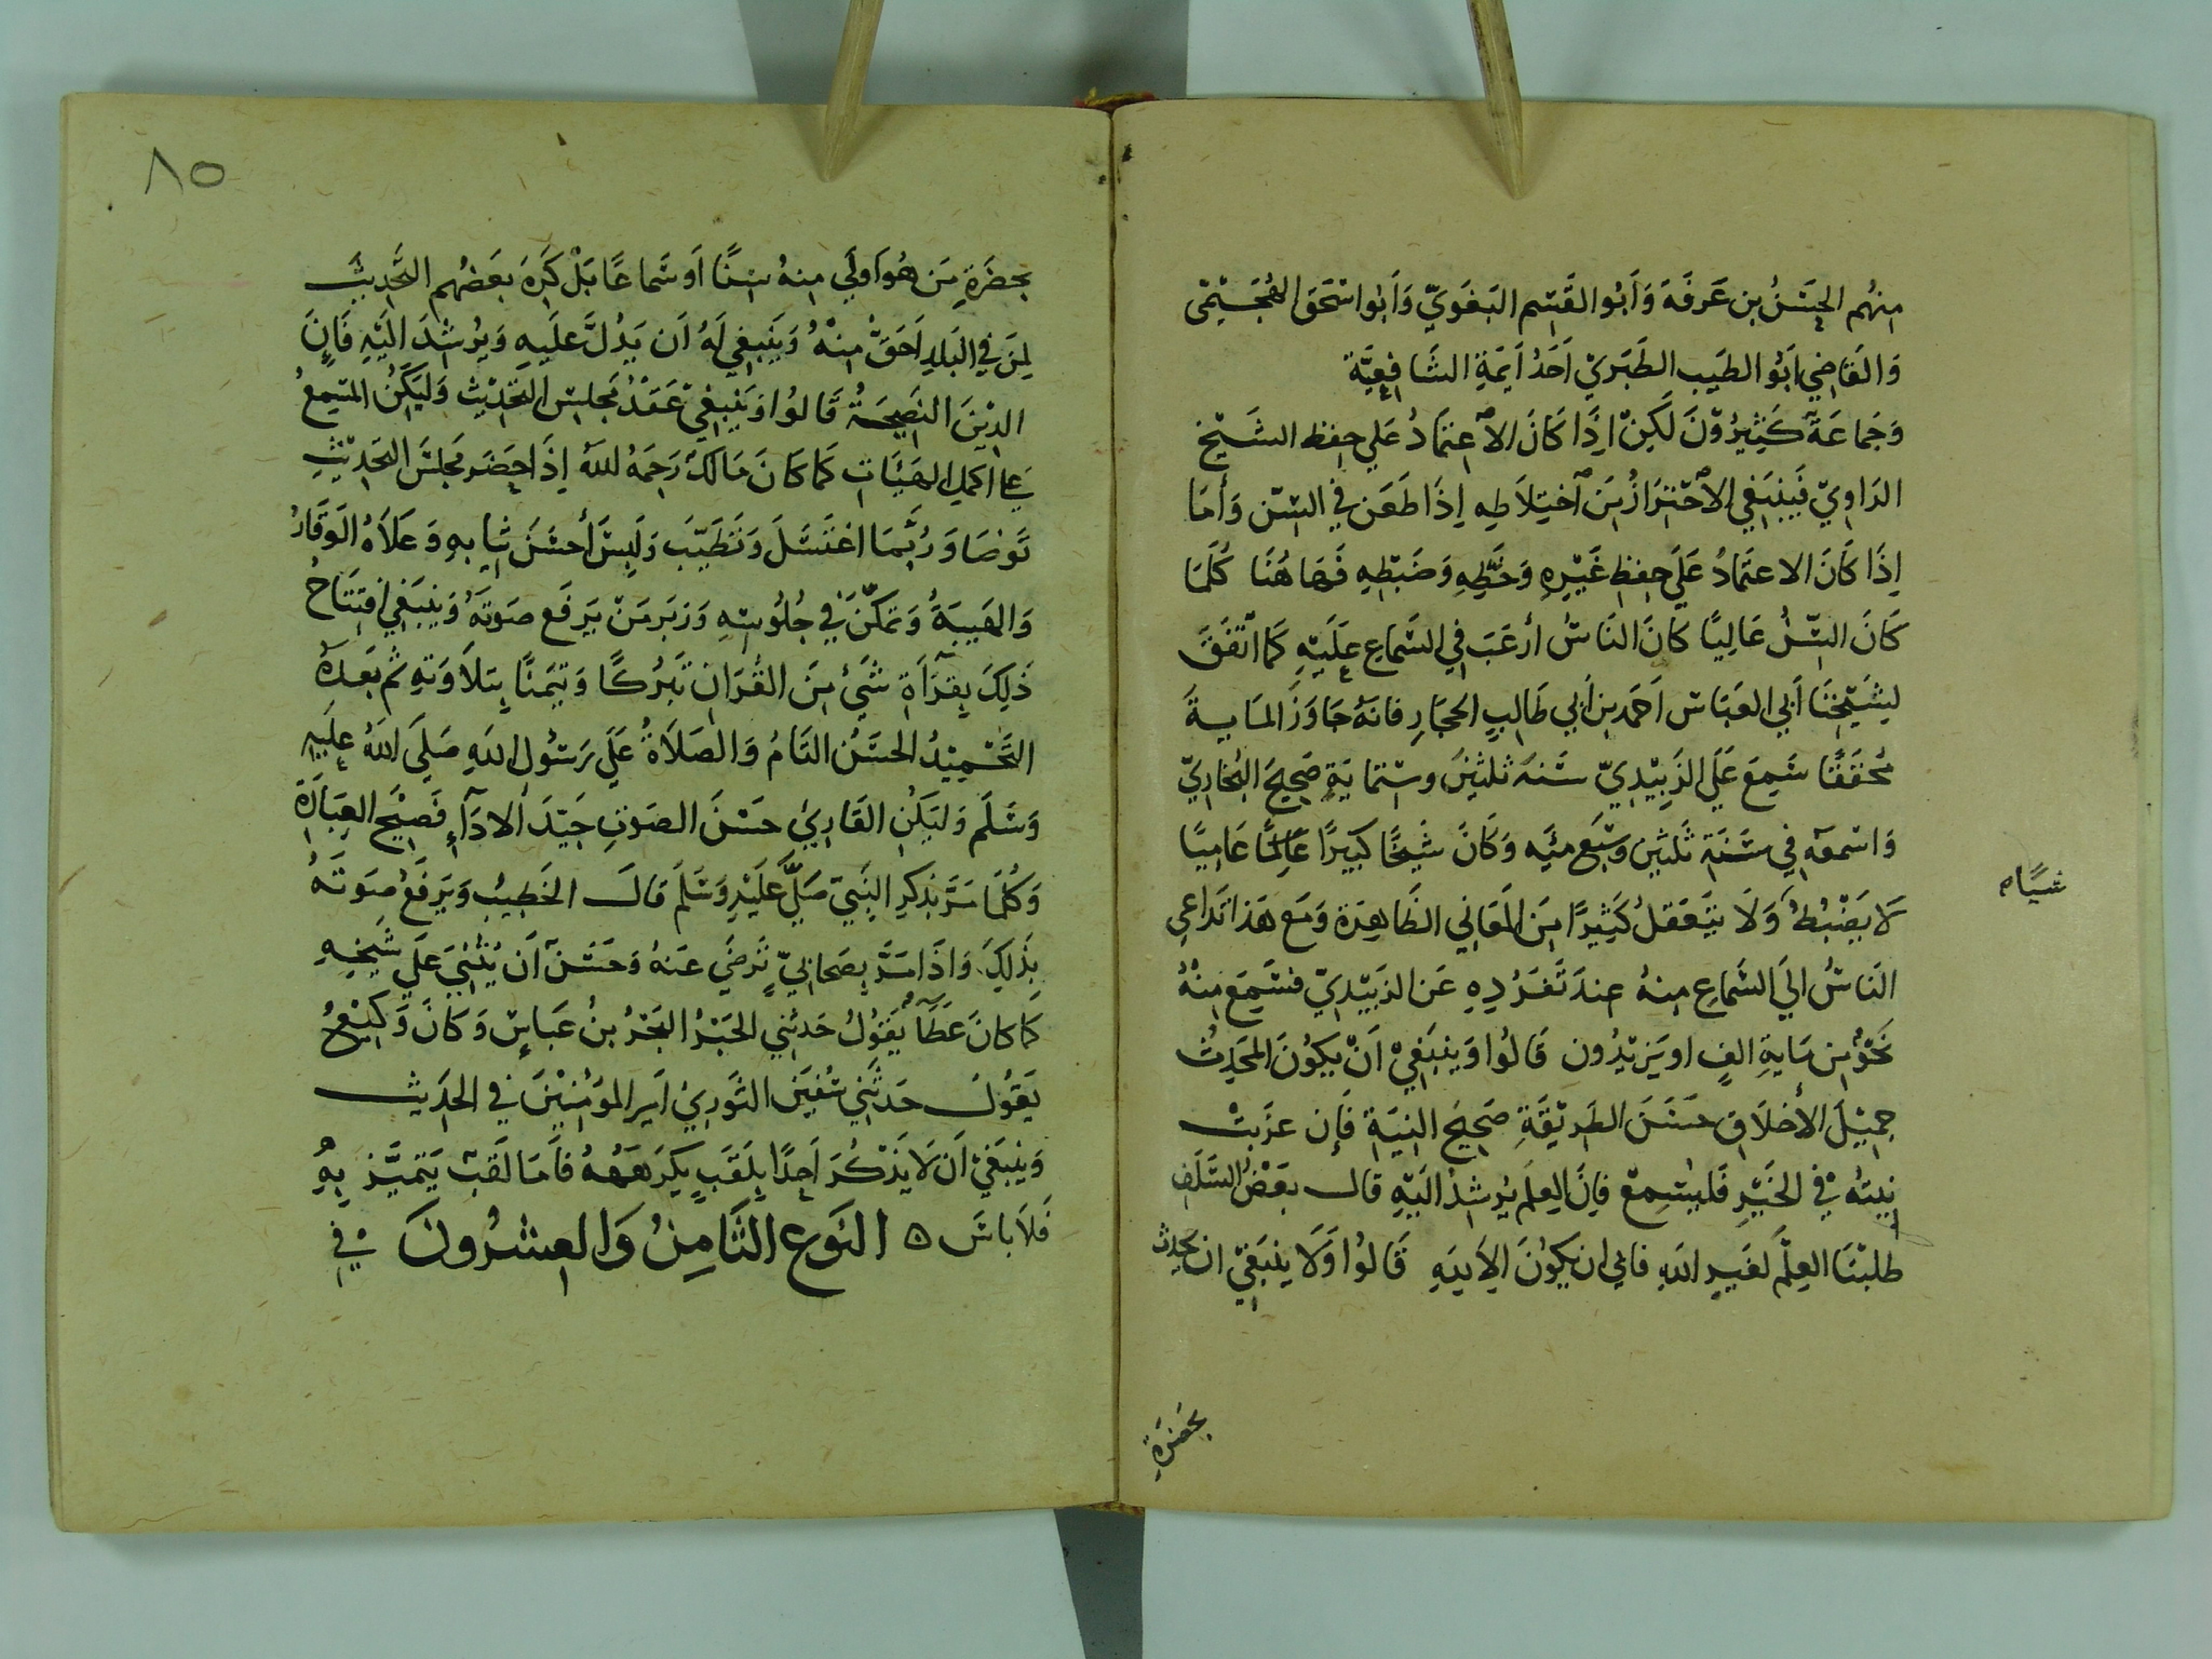 منهُم الحسَنُ بن عَرفَة وَأبُو القَسِم البَغَوِيّ وَأبُوا سْحَقَ الهُجَيْمِيّ
وَالقَاضِي أبُو الطَيِب الطَبَرِيّ أحَدُ أَيمَةِ الشَافِعِيَّة
وَجَماعَةٌ كَثِيرُوْنَ لَكِنْ إذَا كَانَ الاعتمَادُ عَلي حِفظِ الشَيْخ
الرَاوِيّ فَيَنبَغِي الاحْتِرَازُ مِنَ اخْتِلاَطِهِ إذَا طَعَن في السِّن وَأمَا
إذَا كَانَ الاعتمَادُ عَلَي حِفظِ غَيْرِهِ وَخَطِّهِ وَضَبْطِهِ فَهَا هُنَا كُلَمَا
كَانَ السِّنُّ عَالِيًا كَانَ النَاسُ أرغَبَ في السَّمَاعِ عَلَيْهِ كَمَا اتَّفَقَ
لِشَيْخِنَا أبي العَبَاس أحَمد بن أبي طَالِب الحجَارِ فانَهُ جَاوَزَ المَايةَ
مُحَقَقًا سَمِعَ عَلَي الزَبِيْدِيّ سَنَةَ ثلثِيْن وسْتمايَةٍ صَحِيحَ البُخَارِيّ
وَاسْمعَهٌ في سَنَةِ ثَلثِين وسَبْع مئَيه وَكَانَ شَيخًا كَبِيرًا عَالِمًا عَامِيًا
شيئاه
لاَ يَضْبُطُ وَلاَ يَتَعَقَلُ كَثِيرًا مِنَ المَعَانِي الظَاهِرَة وَمَع هَذا تَدَاعي
النَاسُ الَي السَّمَاعِ مِنهُ عِندَ تَفَرُدِهِ عَن الزبَيْدِيّ فسَمِعَ مِنْهُ
نَحْوٌ مِن مَايةِ الفٍ او يَزيْدُون قَالُوا وَيَنبَغِيْ أنْ يَكوُنَ المحَدِثُ
جمِيْلَ الأخلَاقِ حسَنَ الطَرِيْقَةِ صَحِيحَ النِيَةِ فَإن عزَبتْ
نِيتهُ في الخَيْرِ فَليسْمِعْ فإنَ العِلَم يُرشِدُ الَيْهِ قال بعَضُ السَّلَف
طلبْنَا العِلْمَ لغَيرِ اللَهِ فابي ان يَكوُنَ الاِ لِلَهِ قَالُوا وَلا يَنبَغيْ ان يحدث
بحضرَةِ
٨٥
بحضَرَةِ مَن هُوَ اَولَي مِنهُ سِنًّا اَو سَماعًا بَلْ كَرِهَ بعَضهُم التَّحَدِيثَ
لِمَن في البَلدِ أحَقُّ مِنْهُ وَيَنبغِي لَهُ أن يَدُلَّ عَلَيهِ وَيرُشِدَ الَيْهِ فَإِنَ
الدِيْنَ النَصِيحَةُ قَالُوا وَيَنبَغِيْ عَقْدُ مَجلِس التَّحَدِيْثِ وَليَكُنِ المُسْمِعُ
عَلي اَكمَلِ الهَيَئَاتِ كَما كَانَ مَالكٌ رَحِمَهُ للَّهُ إذَا حَضَر مَجلِسَ التَحَدِيْثِ
تَوضَا وَرُبَّمَا اغتَسَلَ وَتَطَيَّبَ وَلَبِسَ أحسَنَ ثِيَابهِ وَعَلاَهُ الَوقَارُ
وَالهَيبَةُ وَتمكّنَ في جُلوُسِهِ وَزبَر مَنْ يَرفَع صَوتَهُ وَينبَغِي افِتَتَاحُ
ذَلِكَ بِقرَآةِ شَئٍ مِنَ القُرَانِ تَبَرُكًا وَتيَمنًا بِتلاَوَتهِ ثم بَعدَهُ
التَّحْمِيْدُ الحسَنُ التَامُ وَالصَلاَةُ عَلَي رَسُولِ اللَهِ صَلَي اللهُ عَلَيهِ
وَسَلَم وَليَكُنِ القَارِيُ حسَنَ الصَوتِ جَيِّدَ الادَآءِ فَصِيْحَ العِبَارَةِ
وَكُلَمَا مَرَّ بذِكِر النَبِيّ صَلَّي عَلَيْهِ وَسَلَمَ قالَ الخَطِيبُ وَيَرفَعُ صَوتَهُ
بِذَلِكَ وَاذَا مَرَّ بِصَحَابيّ تَرضَي عَنهُ وَحسُنَ أن يُثنِيَ عَلَي شَيخِهِ
كمَا كانَ عَطَآ يَقوُلُ حَدثِنِي الحَبْرُ البَحْرُ بنُ عَباسٍ وَكَانَ وَكَيْعٌ
يَقوُلُ حَدثَنِي سُفيَن الثَورِيُ اَميِر المؤَمِنِيْنَ في الحَدِيث
وَينبَغِيْ أن لاَ يَذْكُرَ أحَدًا بِلَقَبٍ يَكرَهَهُ فأمَا لَقَبٌ يَتميَّز بِهِ
فَلاَ باسَ ه النَوع الثَامِنُ وَالعِشرُونَ في